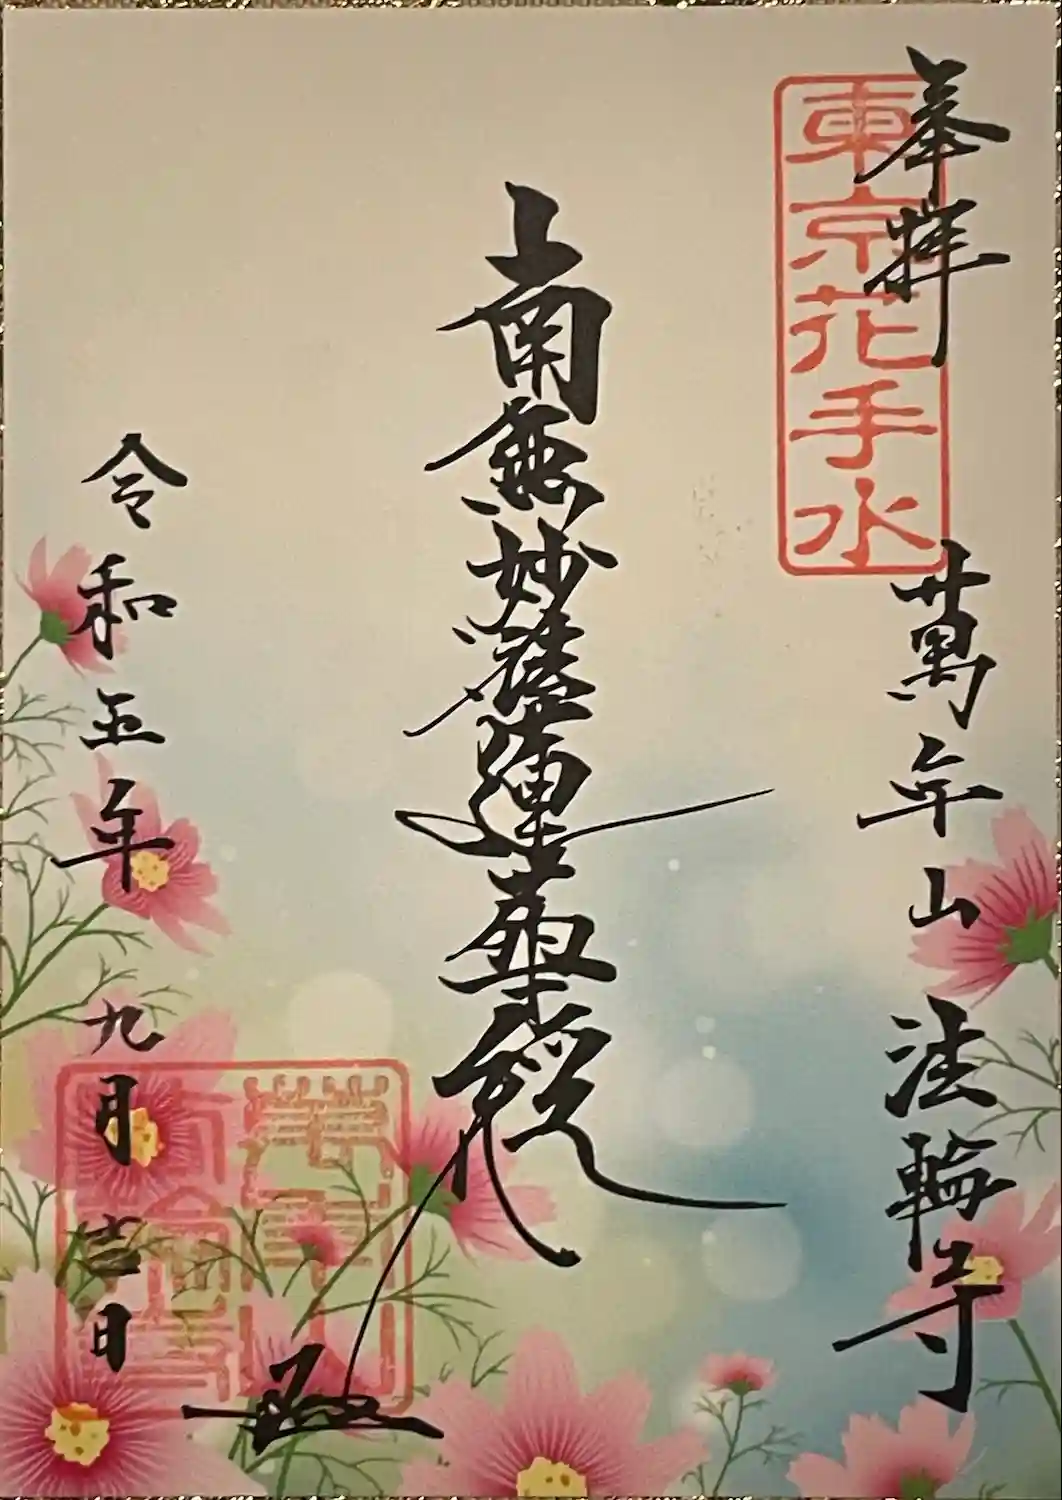 奉拝
東京花手水
萬年山 法輪寺
南無妙法蓮華経
令和五年 九月吉日